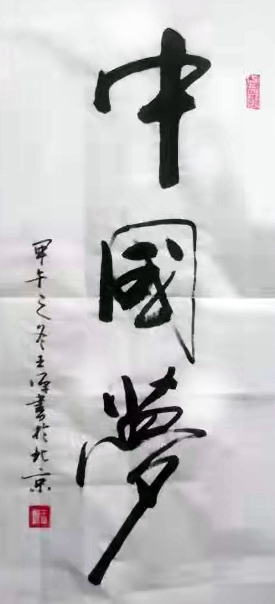 中國夢
甲午之冬王源書於北京